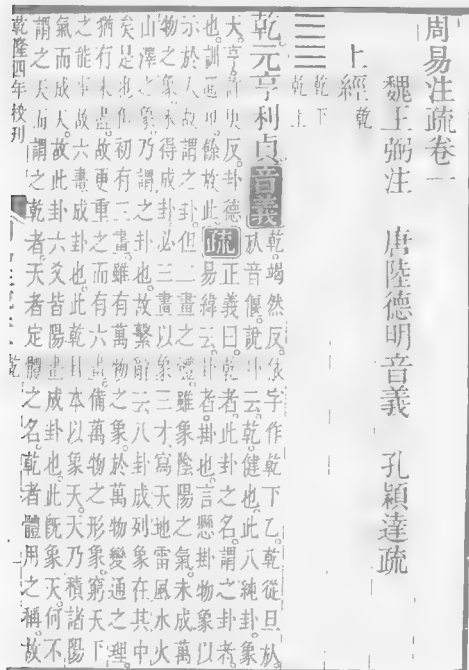 周易注疏卷一
魏王弼注　唐陸德明音義　孔穎達疏
上經乾
乾下
乾上
乾元亨利貞音義乾。竭然反。依字作乾下乙。乾從旦㫃
㫃音偃。說卦云。乾。健也。此八純卦。象
天。亨。許庚反。卦德
也。訓通也。餘放此。疏正義曰。乾者。此卦之名。謂之卦者。
易緯云。卦者。掛也。言懸掛物象以
示於人。故謂之卦。但二畫之體。雖象陰陽之氣。未成萬
物之象。未得成卦。必三畫以象三才。寫天地雷風水火
山澤之象。乃謂之卦也。故繫辭云。八卦成列。象在其中
矣。是也。但初有三畫。雖有萬物之象。於萬物變通之理。
猶有未盡。故更重之而有六畫。備萬物之形象。窮天下
之能事。故六畫成卦也。此乾卦本以象天。天乃積諸陽
氣而成天。故此卦六爻皆陽畫成卦也。此既象天。何不
謂之天而謂之乾者。天者定體之名。乾者體用之稱。故
乾隆四年校刊
乾